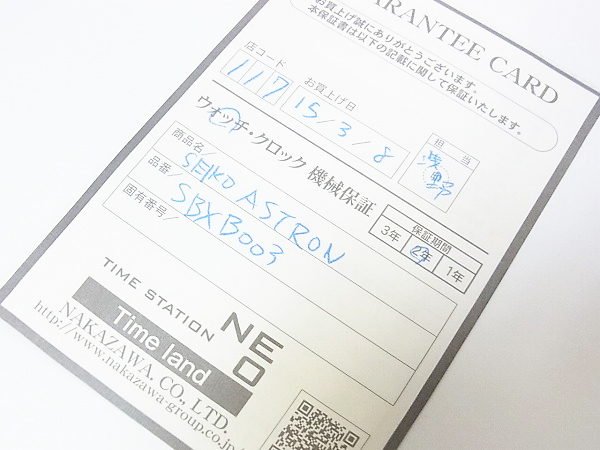 ARANTEE CARD
お買上げ誠にありがとうございます。
本保証書は以下の記載に関して保証いたします。
店コード
117
お買上げ日
15/3/8
担当
浅野
ウォッチ・クロック 機械保証
保証期間
3年 2年 1年
商品名
SEIKO ASTRON
品番
SBXB003
固有番号
TIME STATION NEO
Time land
NAKAZAWA. CO., LTD.
http://www.nakazawa-group.co.jp